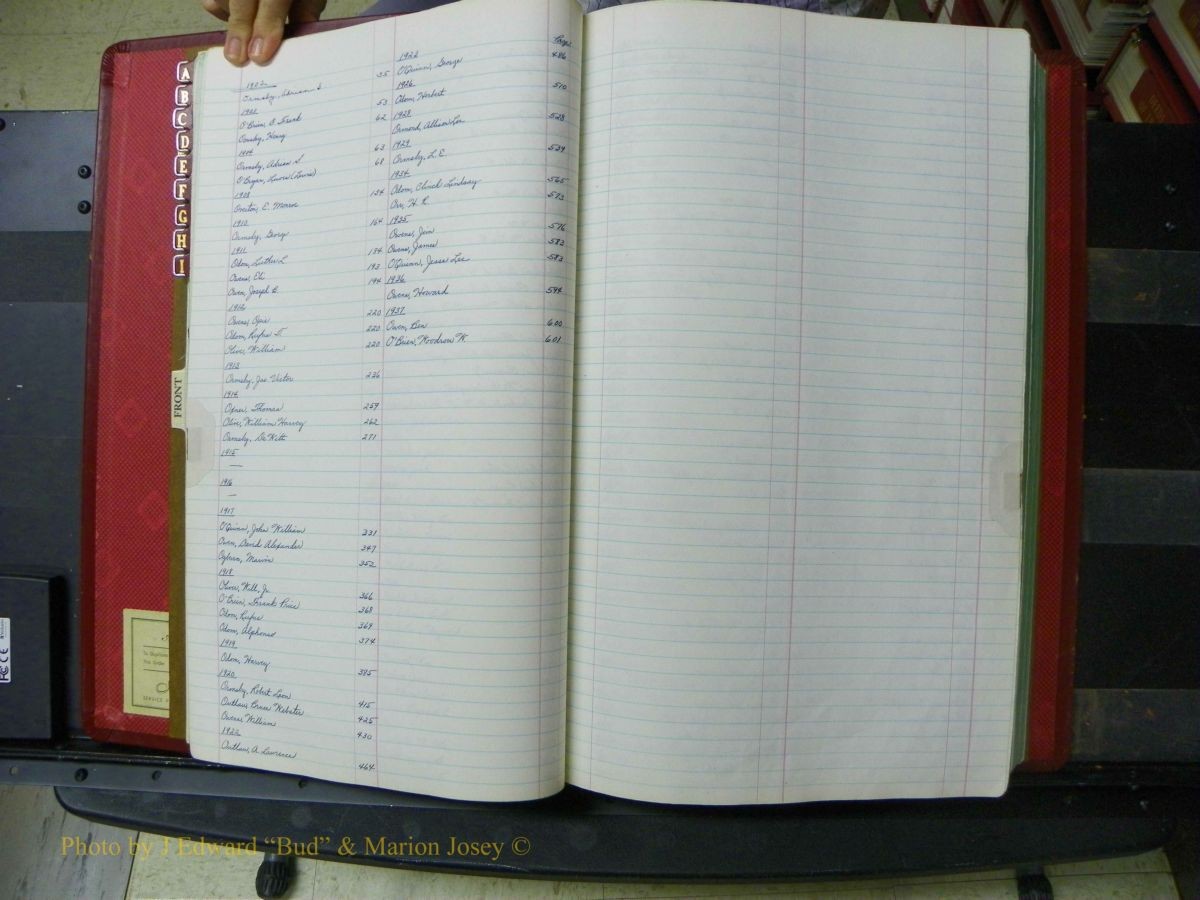 A
B
C
D
E
F
G
H
I
FRONT
1902
Ormsby, Adrian S 35
O'Brien, O. Frank 53
Ormsby, Henry 62
1904
Ormsby, Adrian S. 63
O'Bryan, Lewis (Louis) 68
1908
Overton, E. Monroe 134
1910
Ormsby, George 164
1911
Odom, Luther L 184
Owens, Eli 193
Owen, Joseph B. 194
1912
Owens, Opie 220
Odom, Rufus 220
Olive, William 220
1913
Ormsby, Jas. Victor 236
1914
Thomas 257
Olive, William Harvey 262
Ormsby, De Witt 271
1915
—
1916
—
1917
O'Quinn, John William 331
Owen, David Alexander 347
Ogburn, Marvin 352
1918
Oliver, Will, Jr. 366
O'Brien, Frank Price 368
Odom, Rufus 369
Odom, Alphonso 374
1919
Odom, Harvey 385
1920
Ormsby, Robert Leon 415
Outlaw, Bruce Webster 425
Owens William 430
1922
Outlaw, A. Lawrence 464
Page
1922
O'Quinn, George 486
1926
Odom, Herbert 510
1928
Ormond, Allison Lee 528
1929
Ormsby, L. E. 539
1934
Odom, Lindsay 565
Orr, H. R. 573
1935
Owens, Jim 576
Owens, James 582
O'Quinn, Jesse Lee 583
1936
Owens, Howard 594
1937
Owen, Ben 600
O'Brien, Woodrow W. 601
Photo by J Edward "Bud" & Marion Josey ©